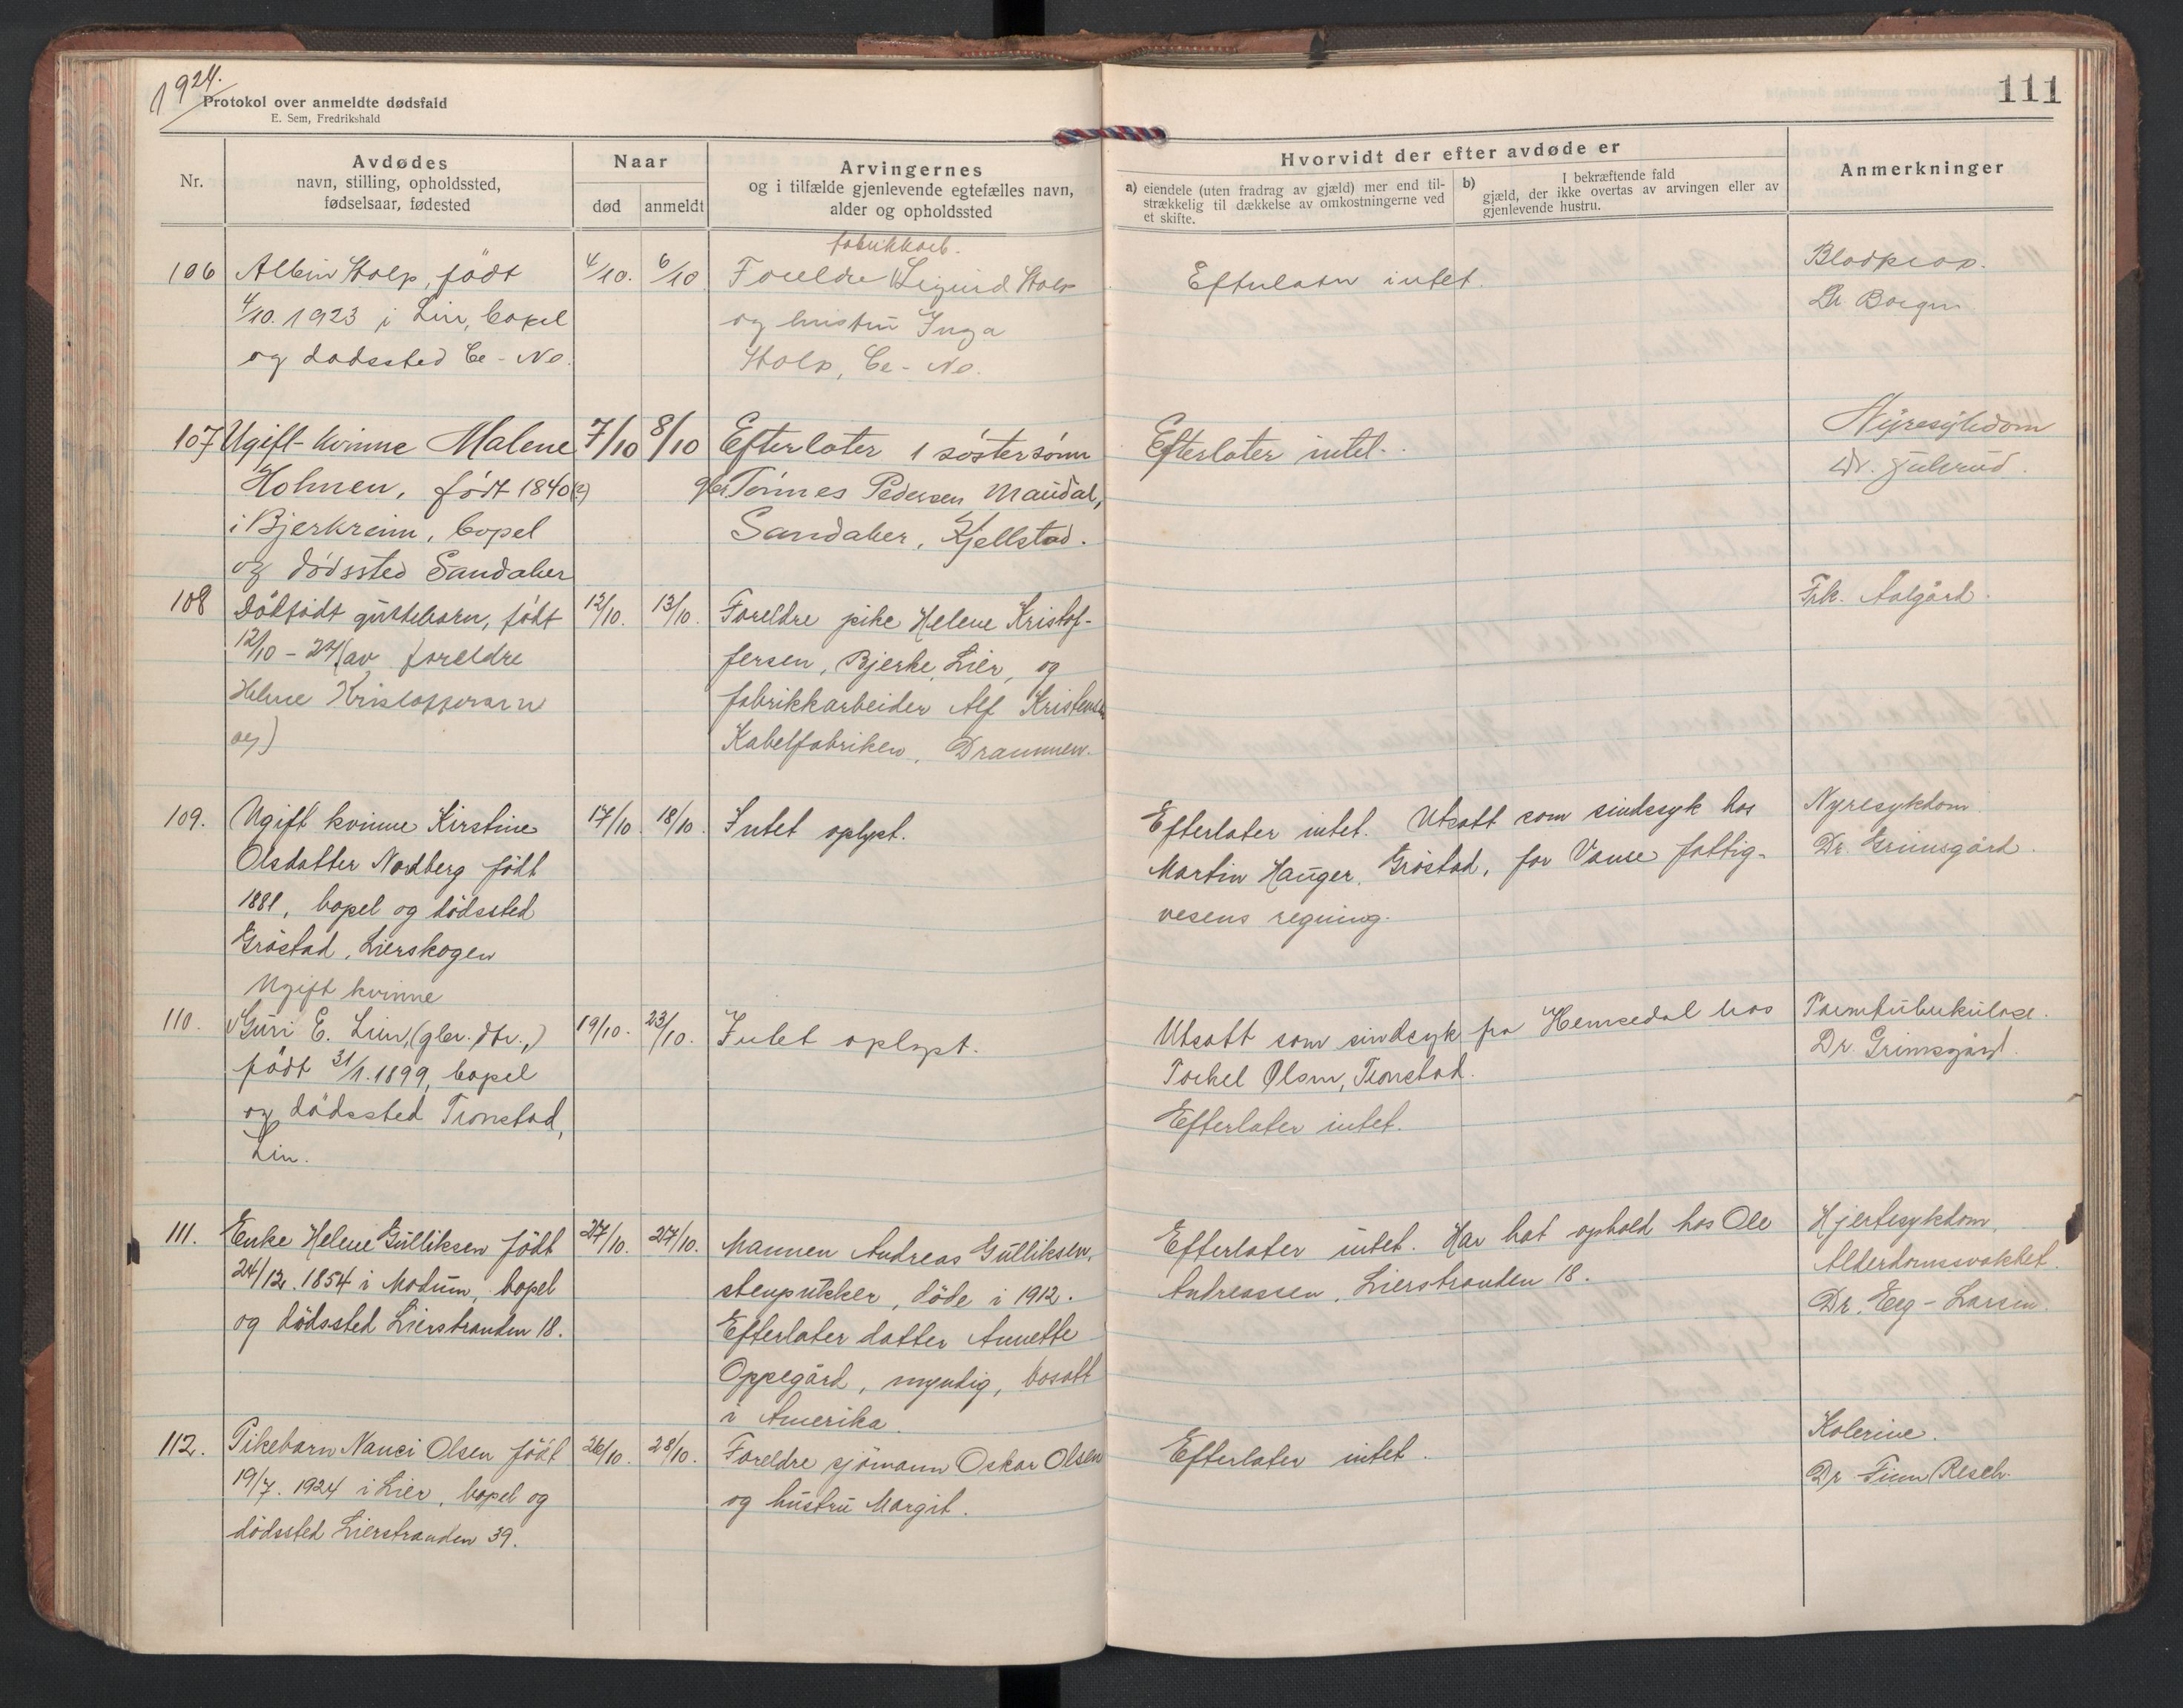 1924.
Protokol over anmeldte dødsfald
E. Sem, Fredrikshald
111
Nr.
Avdødes
navn, stilling, opholdssted,
fødselsaar, fødested
Naar
død
anmeldt
Arvingernes
og i tilfælde gjenlevende egtefælles navn,
alder og opholdssted
Hvorvidt der efter avdøde er
a) eiendele (uten fradrag av gjæld) mer end til-
strækkelig til dækkelse av omkostningerne ved
et skifte.
b) I bekræftende fald
gjæld, der ikke overtas av arvingen eller av
gjenlevende hustru.
Anmerkninger
106
Albin Stolp, født
4/10. 1923 i Lier, bopel
og dødssted
4/10.
6/10
fabrikkarb.
Foreldre Sigurd Stolp
og hustru Inga
Stolp,
Efterlater intet.
Blodprop.
Dr Borgen
107
Ugift kvinne Malene
Holmen, født 1840(?)
i Bjerkreim, bopel
og dødssted Sandaker
7/10
8/10
Efterlater 1 søstersønn
Tønnes Pedersen Maudal,
Sandaker, Kjellstad.
Efterlater intet.
Nyresykdom
Dr. Julerud.
108
Dødfødt guttebarn, født
12/10 - 24 (av foreldre
Helene Kristoffersen
og)
12/10.
13/10.
Foreldre pike Helene Kristof-
fersen, Bjerke, Lier, og
fabrikkarbeider Alf Kristensen
Kabelfabriken, Drammen.
Frk. Aalgård.
109.
Ugift kvinne Kirstine
Olsdatter Nordberg født
1881, bopel og dødssted
Grøstad, Lierskogen
17/10.
18/10.
Intet oplyst.
Efterlater intet. Utsatt som sindssyk hos
Martin Hauger, Grøstad, for Vanse fattig-
vesens regning.
Nyresykdom
Dr. Grimsgård.
110.
Ugift kvinne
Guri E. Lien, (gbr. dtr.,)
født 31/1. 1899, bopel
og dødssted Tronstad,
Lier.
19/10.
23/10.
Intet oplyst.
Utsatt som sindsyk fra Hemsedal hos
Torkel Olsen, Tronstad.
Efterlater intet.
Tarmtuberkulose.
Dr. Grimsgård.
111.
Enke Helene Gulliksen født
24/12. 1854 i Modum, bopel
og dødssted Lierstranden 18.
27/10.
27/10.
Mannen Andreas Gulliksen,
stenpukker, døde i 1912.
Efterlater datter Annette
Oppegård, myndig, bosatt
i Amerika.
Efterlater intet. Har hat ophold hos Ole
Andreassen, Lierstranden 18.
Hjertesykdom,
Alderdomssvakhet.
Dr. Eeg-Larsen.
112.
Pikebarn Nanci Olsen født
19/7. 1924 i Lier, bopel og
dødssted Lierstranden 39.
26/10.
28/10.
Foreldre sjømann Oskar Olsen
og hustru Margit.
Efterlater intet.
Kolerine.
Dr. Finn Resch.